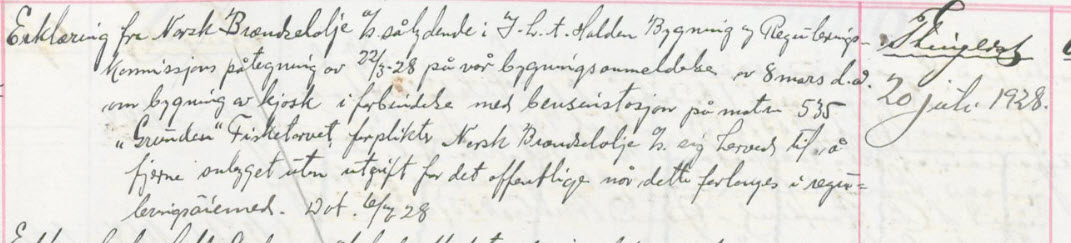 Erklæring fra Norsk Brændselolje A/S sålydende i T.h.t. Halden Bygning og Regulerings-
kommissjons påtegning av 22/3-28 på vår bygningsanmeldelse av 8 mars d.å.
om bygning av kjosk i forbindelse med bensinstasjon på matr. 535
"Grunden" Fisketorvet, forplikter Norsk Brændselolje A/S. sig herved til å
fjerne anlegget uten utgift for det offentlige når dette forlanges i regu=
leringsøiemed. Dat. 28
Thinglæst
20 juli 1928.